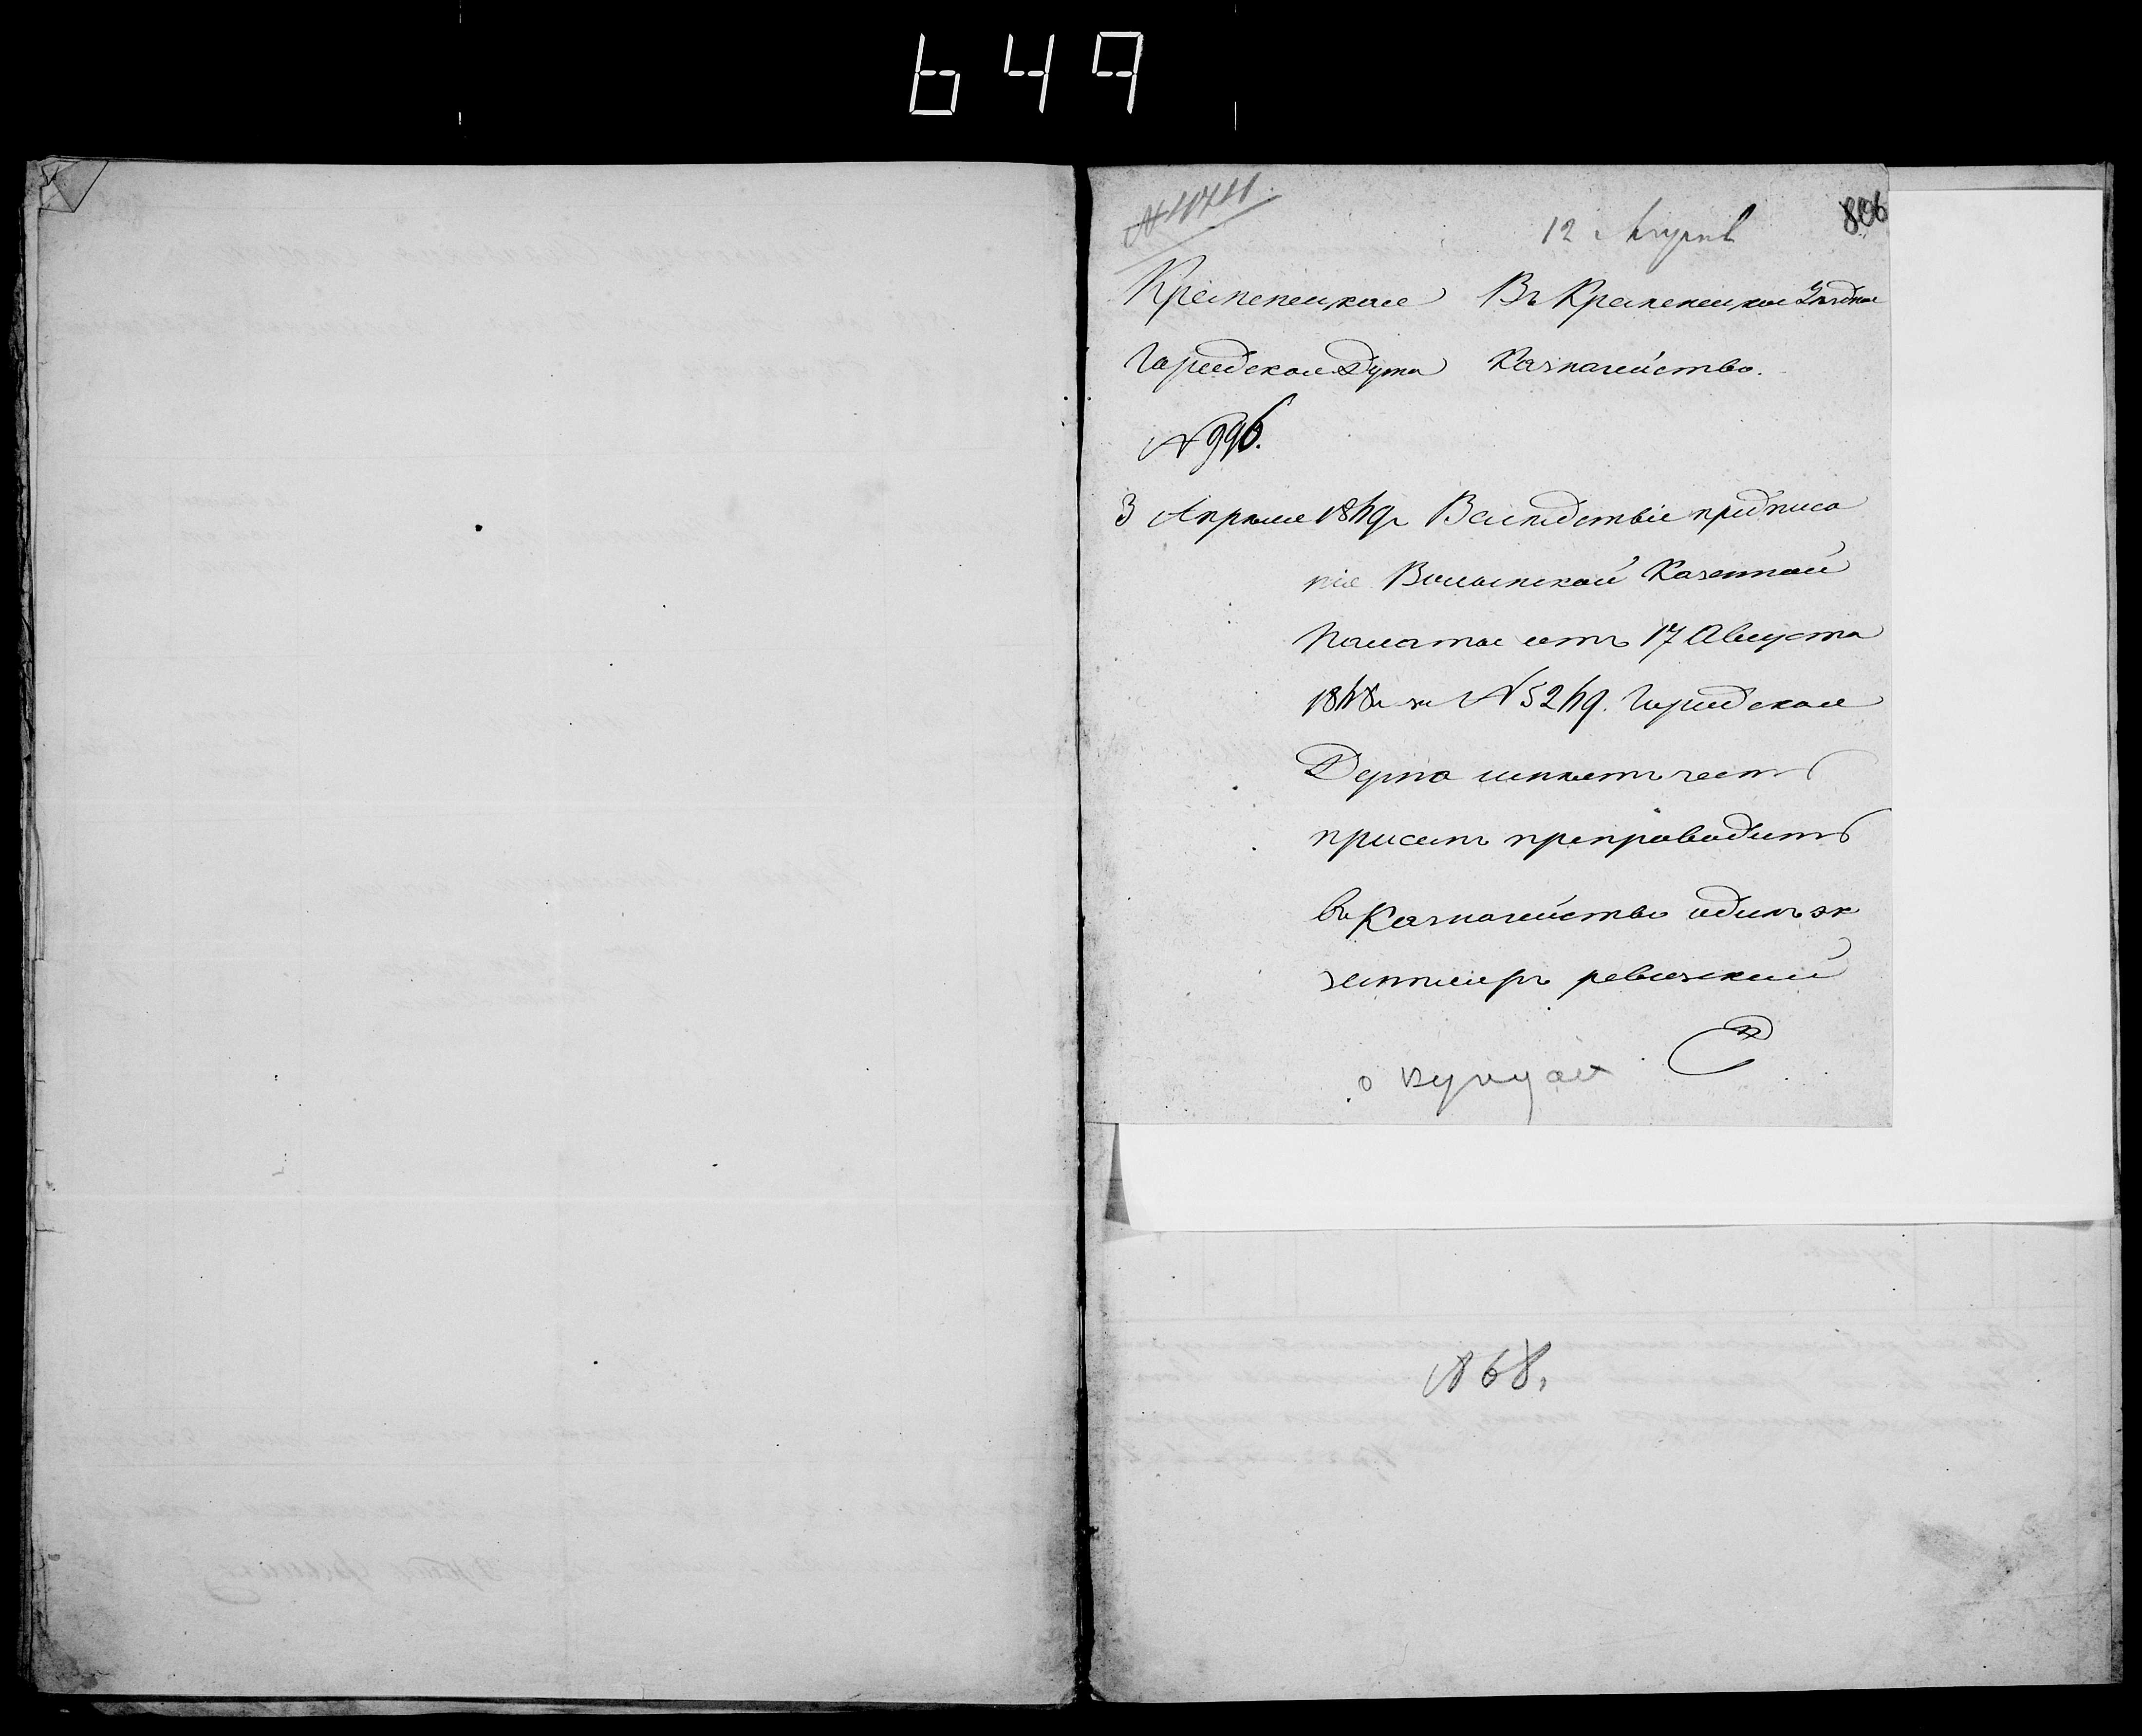 649
806
№ 4741
12 Апреля
Кременецкая Въ Кременецкое Уездное
Городская Дума Казначейство.
№ 996.
3 Апреля 1849г Вследствіе предписа
нія Волынской Казенной
Палаты отъ 17 Августа
1848г за № 5249. Городская
Дума имеетъ честь
присемъ препроводить
въ Казначейство одинъ эк
земпляръ ревизкий
о купцах
1868.